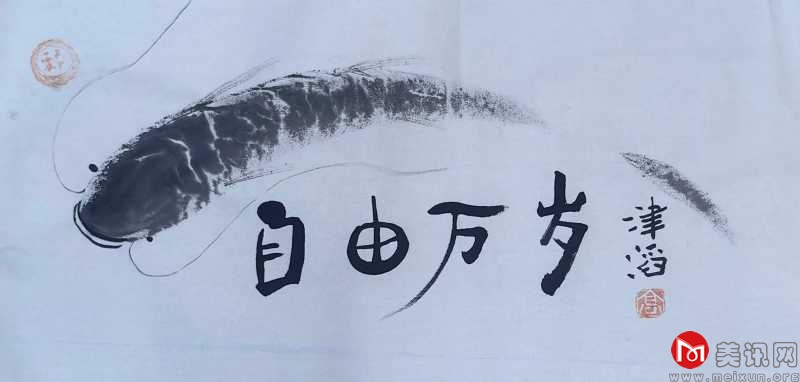 自由万岁
津滔
美讯网
www.meixun.org